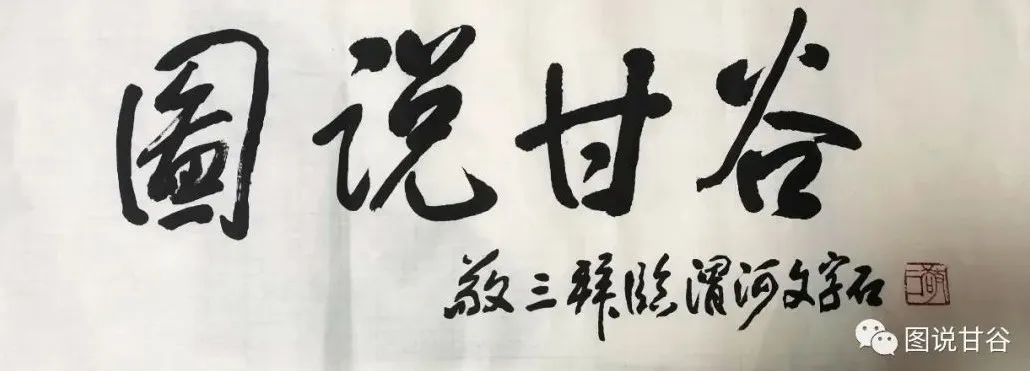 圖説甘谷
敬三拜临渭河文字石
图说甘谷